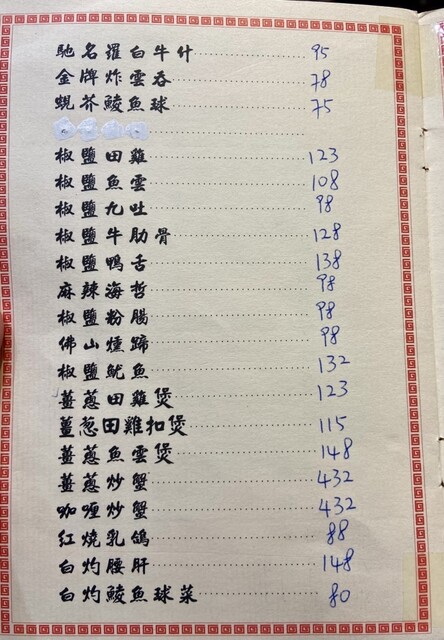 馳名羅白牛什 95
金牌炸雲吞 78
蜆芥鯪魚球 75
椒鹽田雞 123
椒鹽魚雲 108
椒鹽九吐 98
椒鹽牛肋骨 128
椒鹽鴨舌 138
麻辣海哲 98
椒鹽粉腸 98
佛山燻蹄 98
椒鹽魷魚 132
薑蔥田雞煲 123
薑葱田雞扣煲 115
薑蔥魚雲煲 148
薑蔥炒蟹 432
咖喱炒蟹 432
紅燒乳鴿 88
白灼腰肝 148
白灼鯪魚球菜 80